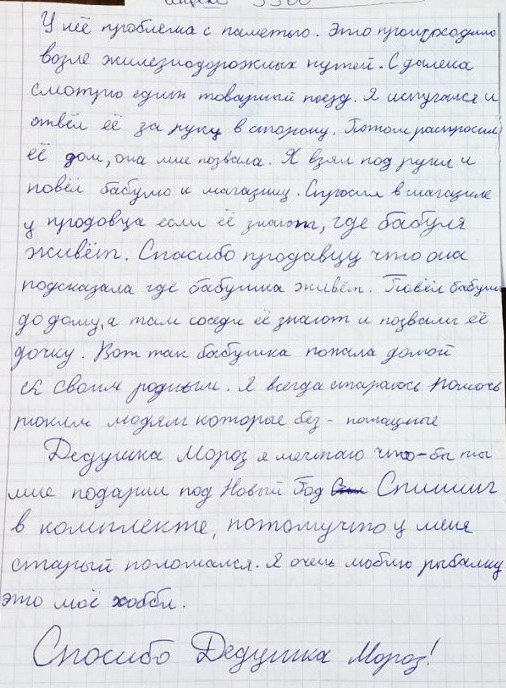 у неё проблема с паметью. Это происходило
возле железнодорожных путей. С далека
смотрю едит товарный поезд. Я испугался и
отвёл её за руку в сторону. Потом распросил
её дом, она мне позвала. Я взял под руки и
повёл бабулю к магазину. Спросил в магазине
у продовца если её знают, где бабуля
живёт. Спасибо продавцу что она
подсказала где бабушка живёт. Повёл бабушк
до дому, а там соседи её знают и позвали её
дочку. Вот так бабушка попала домой
к своим родным. Я всегда стараюсь помочь
таким людям которые без-помащные
Дедушка Мороз я мечтаю что-бы ты
мне подарил под Новый Год Спининг
в комплекте, потомучто у меня
старый поломался. Я очень люблю рыбалку
это моё хобби.
Спосибо Дедушка Мороз!